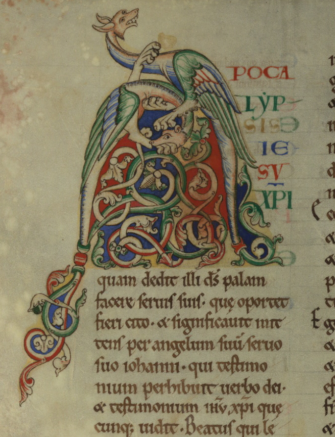 A
POCA
LYP
SIS
IE
SV
XPI
quam dedit illi d̄s palam
facere seruis suis. que oportet
fieri cito. & significauit mit
tens per angelum suū seruo
suo iohanni. qui testimo
nium perhibuit uerbo dei.
& testimonium ihu xpi que
cunq; uidit. Beatus qui le